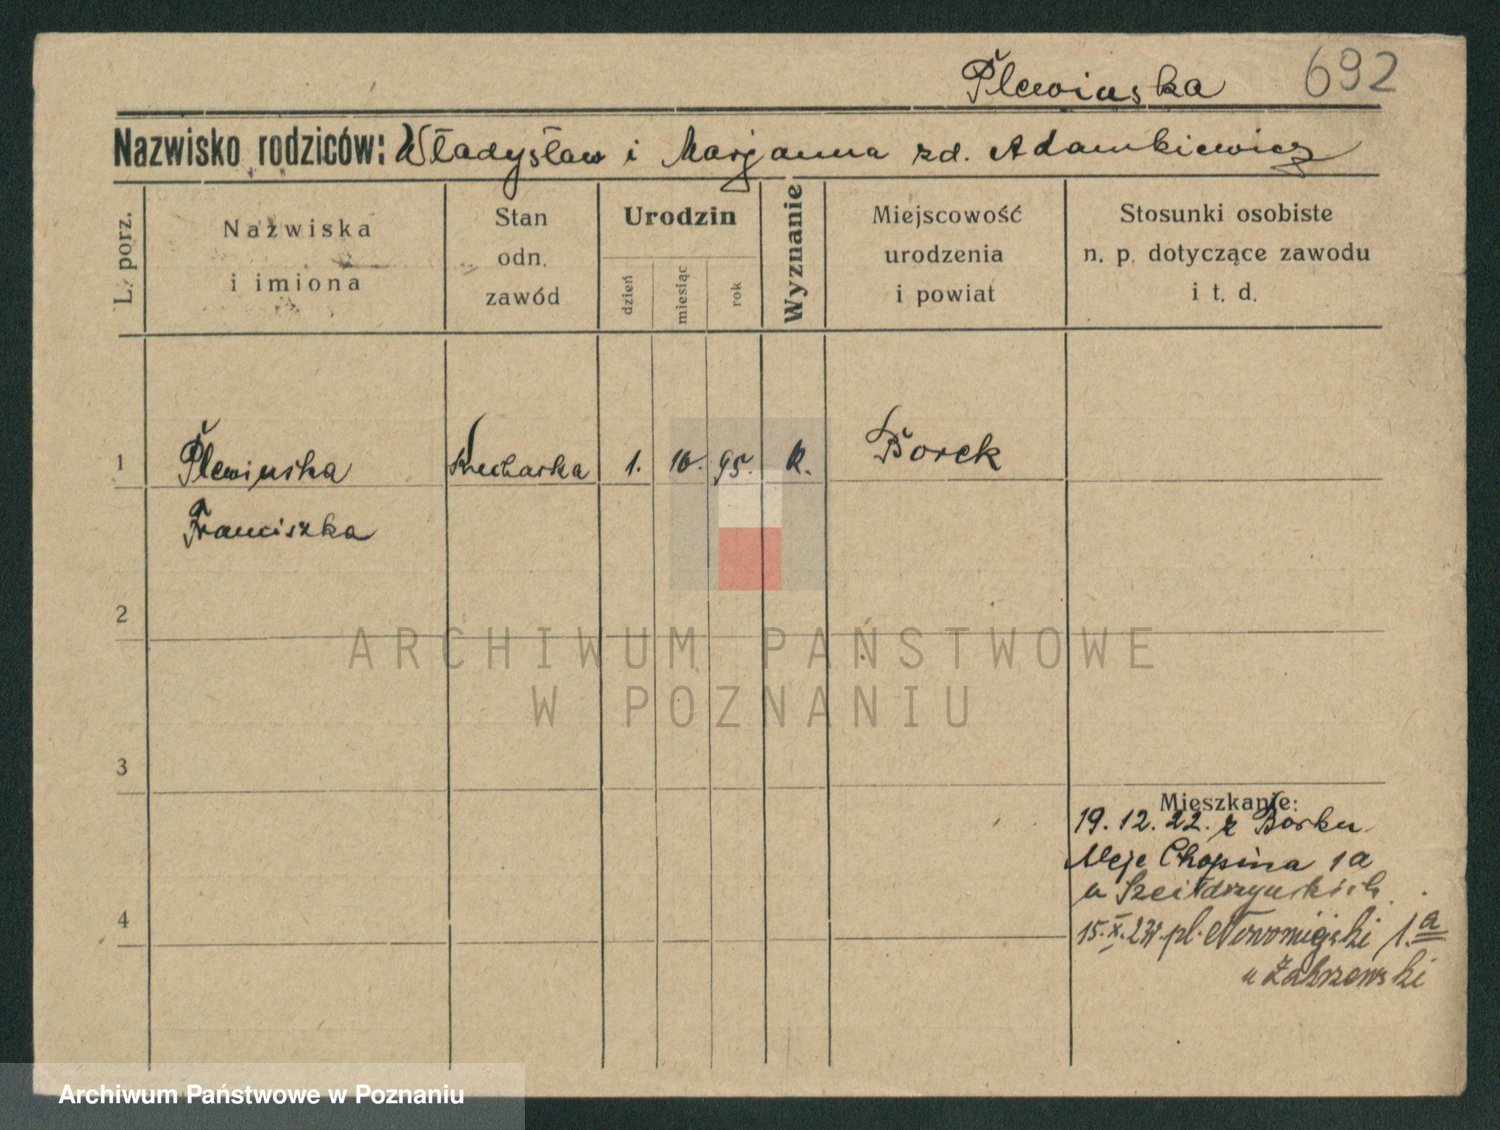 Plewinska 692
Nazwisko rodziców: Władysław i Marjanna zd. Adamkiewicz
L. porz.
Nazwiska
i imiona
Stan
odn.
zawód
Urodzin
dzień
miesiąc
rok
Wyznanie
Miejscowość
urodzenia
i powiat
Stosunki osobiste
n. p. dotyczące zawodu
i t. d.
1 Plewinska Kucharka 1. 10. 95. K. Borek
Franciszka
2
ARCHIWUM PAŃSTWOWE
W POZNANIU
3
Mieszkanie:
19. 12. 22. z Borku
Aleje Chopina 1a
u
4
15.X.23. pl. Nowomiejski 1.a
u Zakrzewski
Archiwum Państwowe w Poznaniu